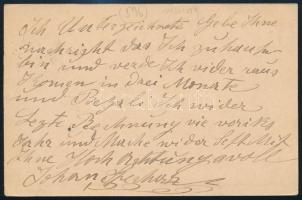 Ich Unterzeichnete Gebe Ihne
nachright das Ich zuhause
bin und werde Ich wider raus
komen in drei Monate
und Bezale Ich wider
letzte Rechnung vie voriks
Jahr und Mache wider Gescheft Mit
Ihne Hoch Achtungsvoll
Johan